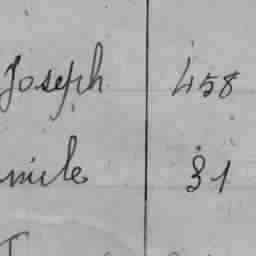 Joseph 458
mile 31